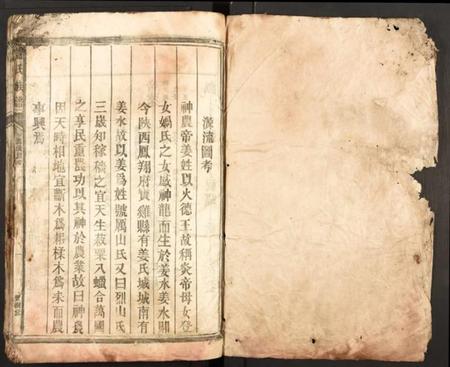 源流圖考
神農帝姜姓以火德王故稱炎帝母女登
女媧氏之女感神龍而生於姜水姜水關
今陝西鳳翔府寶雞縣有姜氏城城南有
姜水故以姜爲姓號厲山氏又曰烈山氏
三歲知稼穡之宜天生菽粟入蠟合萬國
之享民重農功以其神於農業故曰神農
因天時相地宜斷木爲耜揉木爲耒而農
事興焉
氏族譜